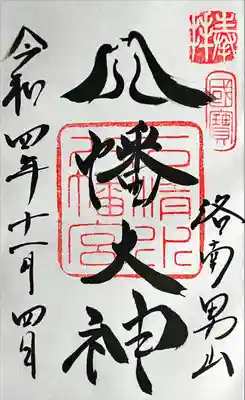 奉拝
國寶
洛南男山
八幡大神
石清水
八幡宮
令和四年十一月四日